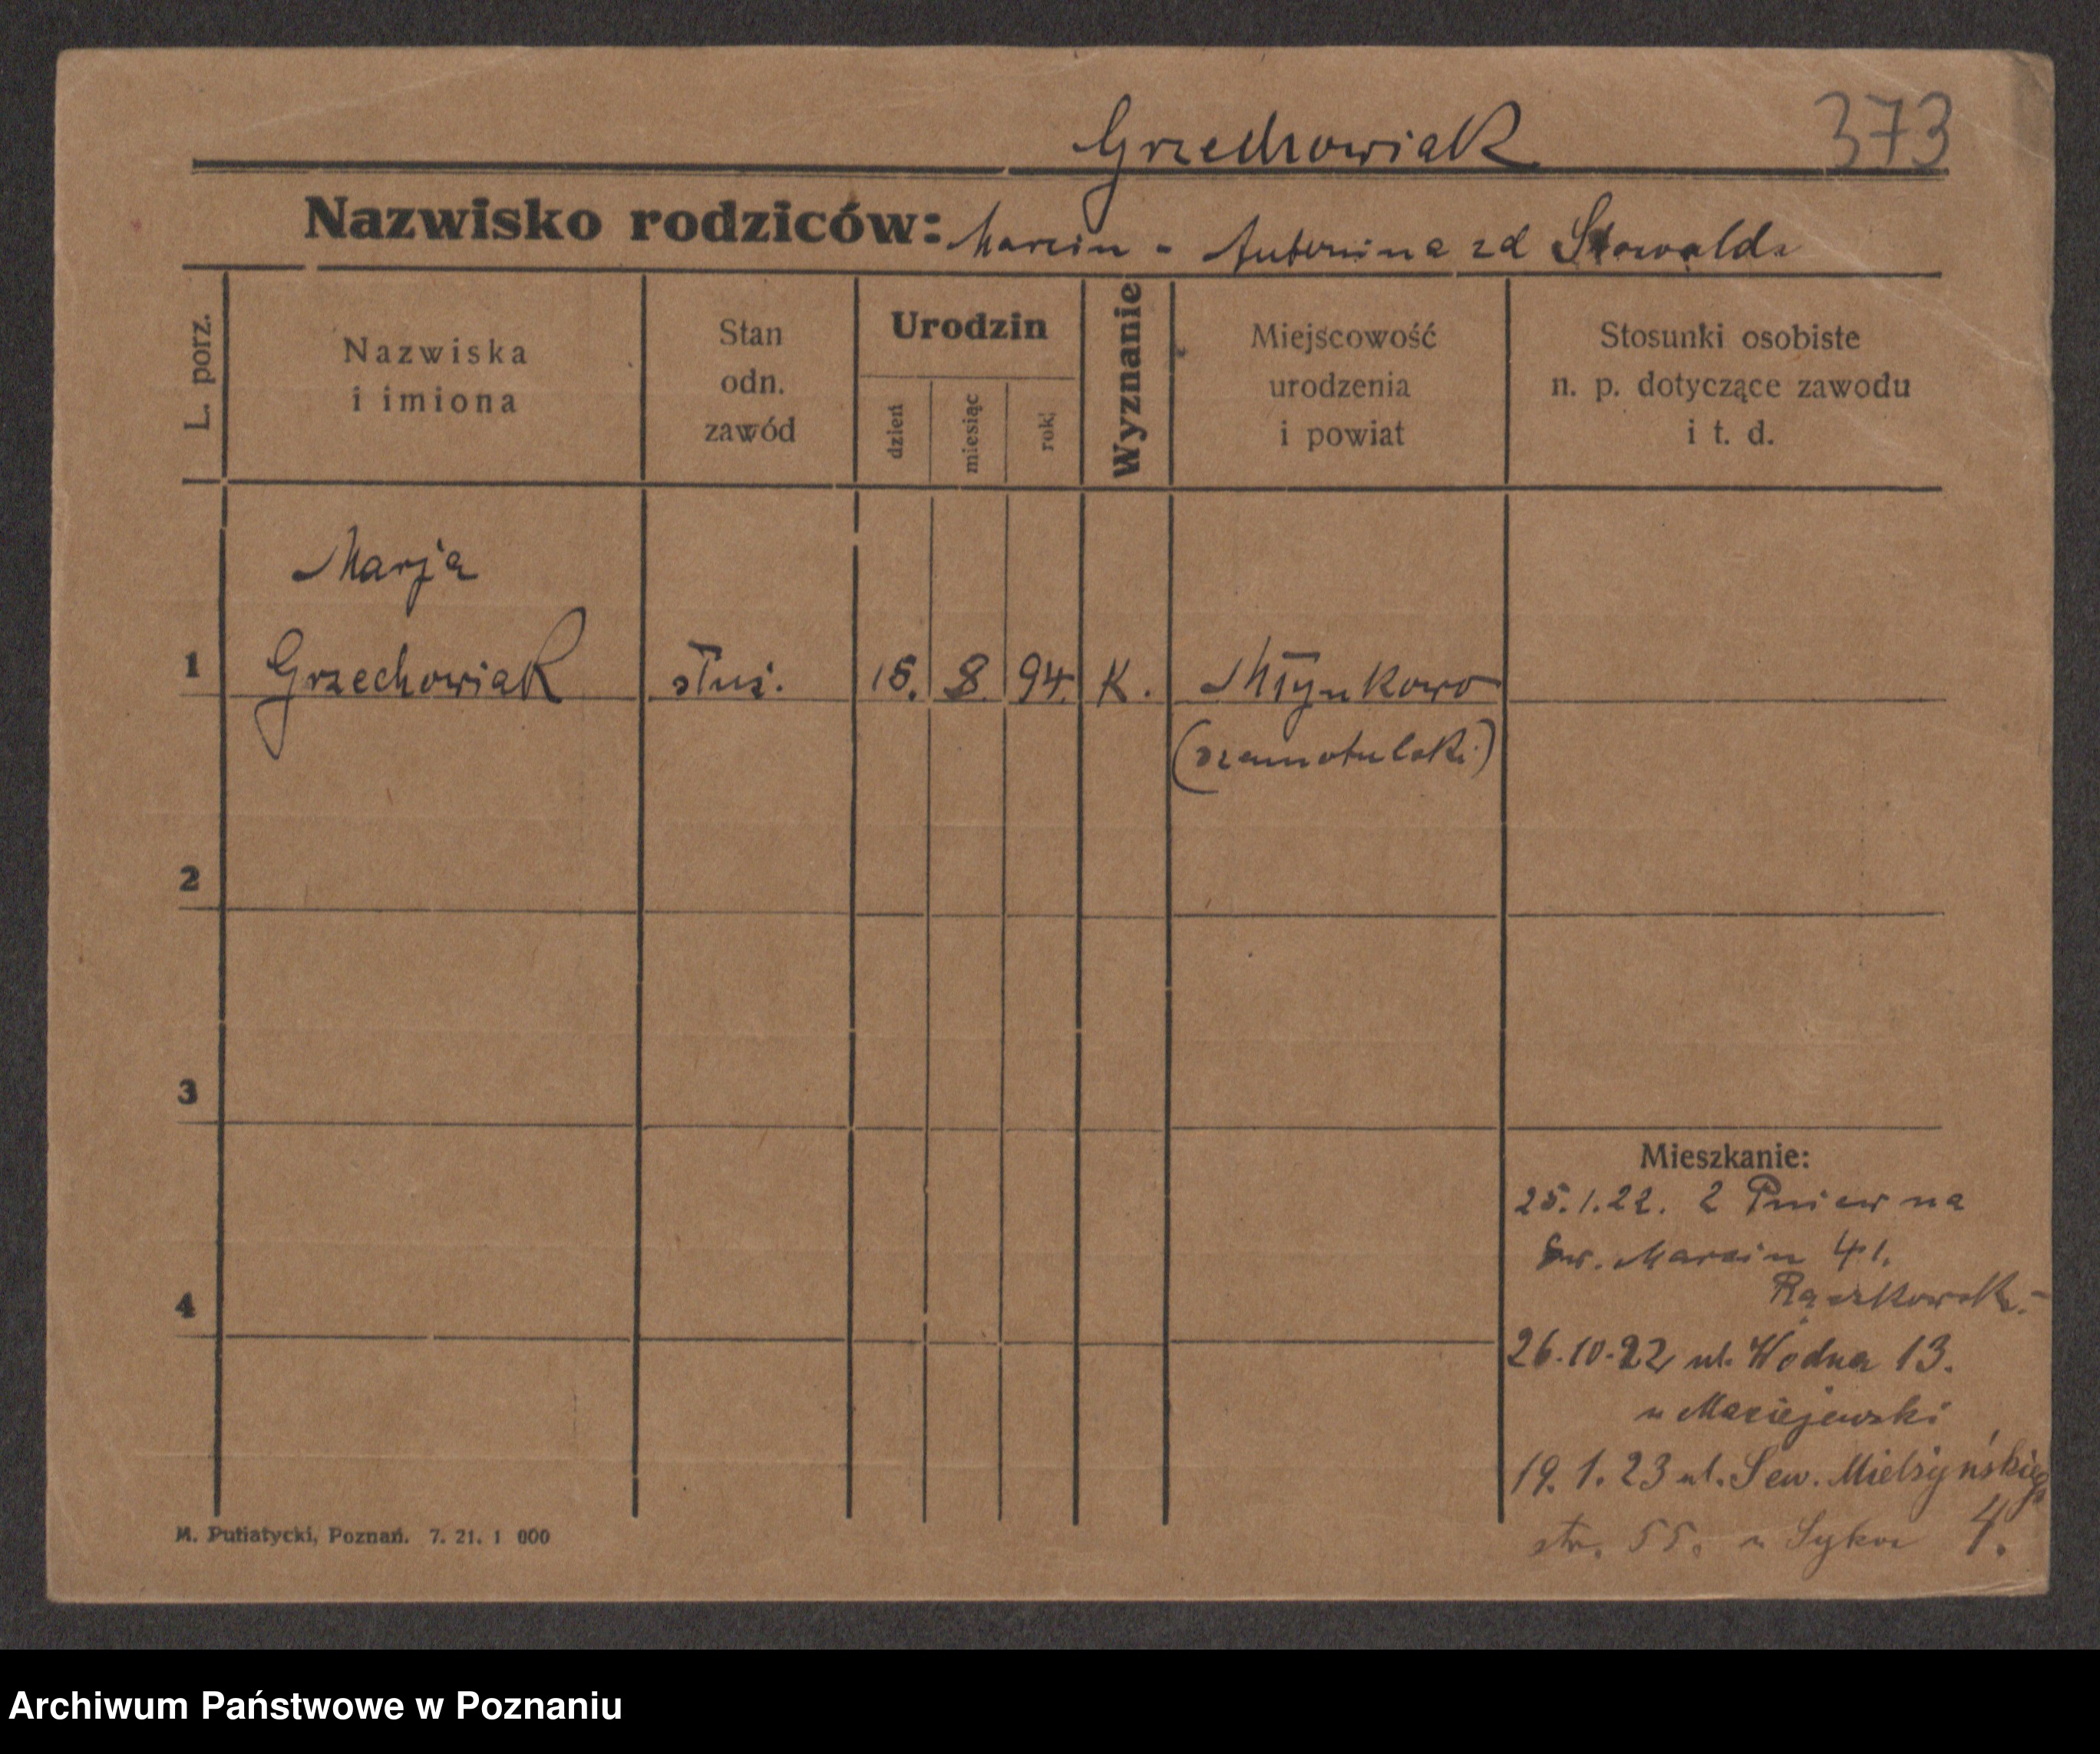 Grzechowiak 373
Nazwisko rodziców: Marcin - Antonina zd
L. porz.
Nazwiska
i imiona
Stan
odn.
zawód
Urodzin
dzień
miesiąc
rok
Wyznanie
Miejscowość
urodzenia
i powiat
Stosunki osobiste
n. p. dotyczące zawodu
i t. d.
Marja
1 Grzechowiak służ. 15. 8. 94. K. Młynkowo
(szamotulski)
2
3
4
Mieszkanie:
25.1.22. z Pniew na
św. Marcin 41.
26.10.22 ul. Wodna 13.
u Maciejewski
19.1.23 ul. Sew. Mielżyńskiego
str. 55. u 4.
M. Putiatycki, Poznań. 7. 21. 1 000
Archiwum Państwowe w Poznaniu